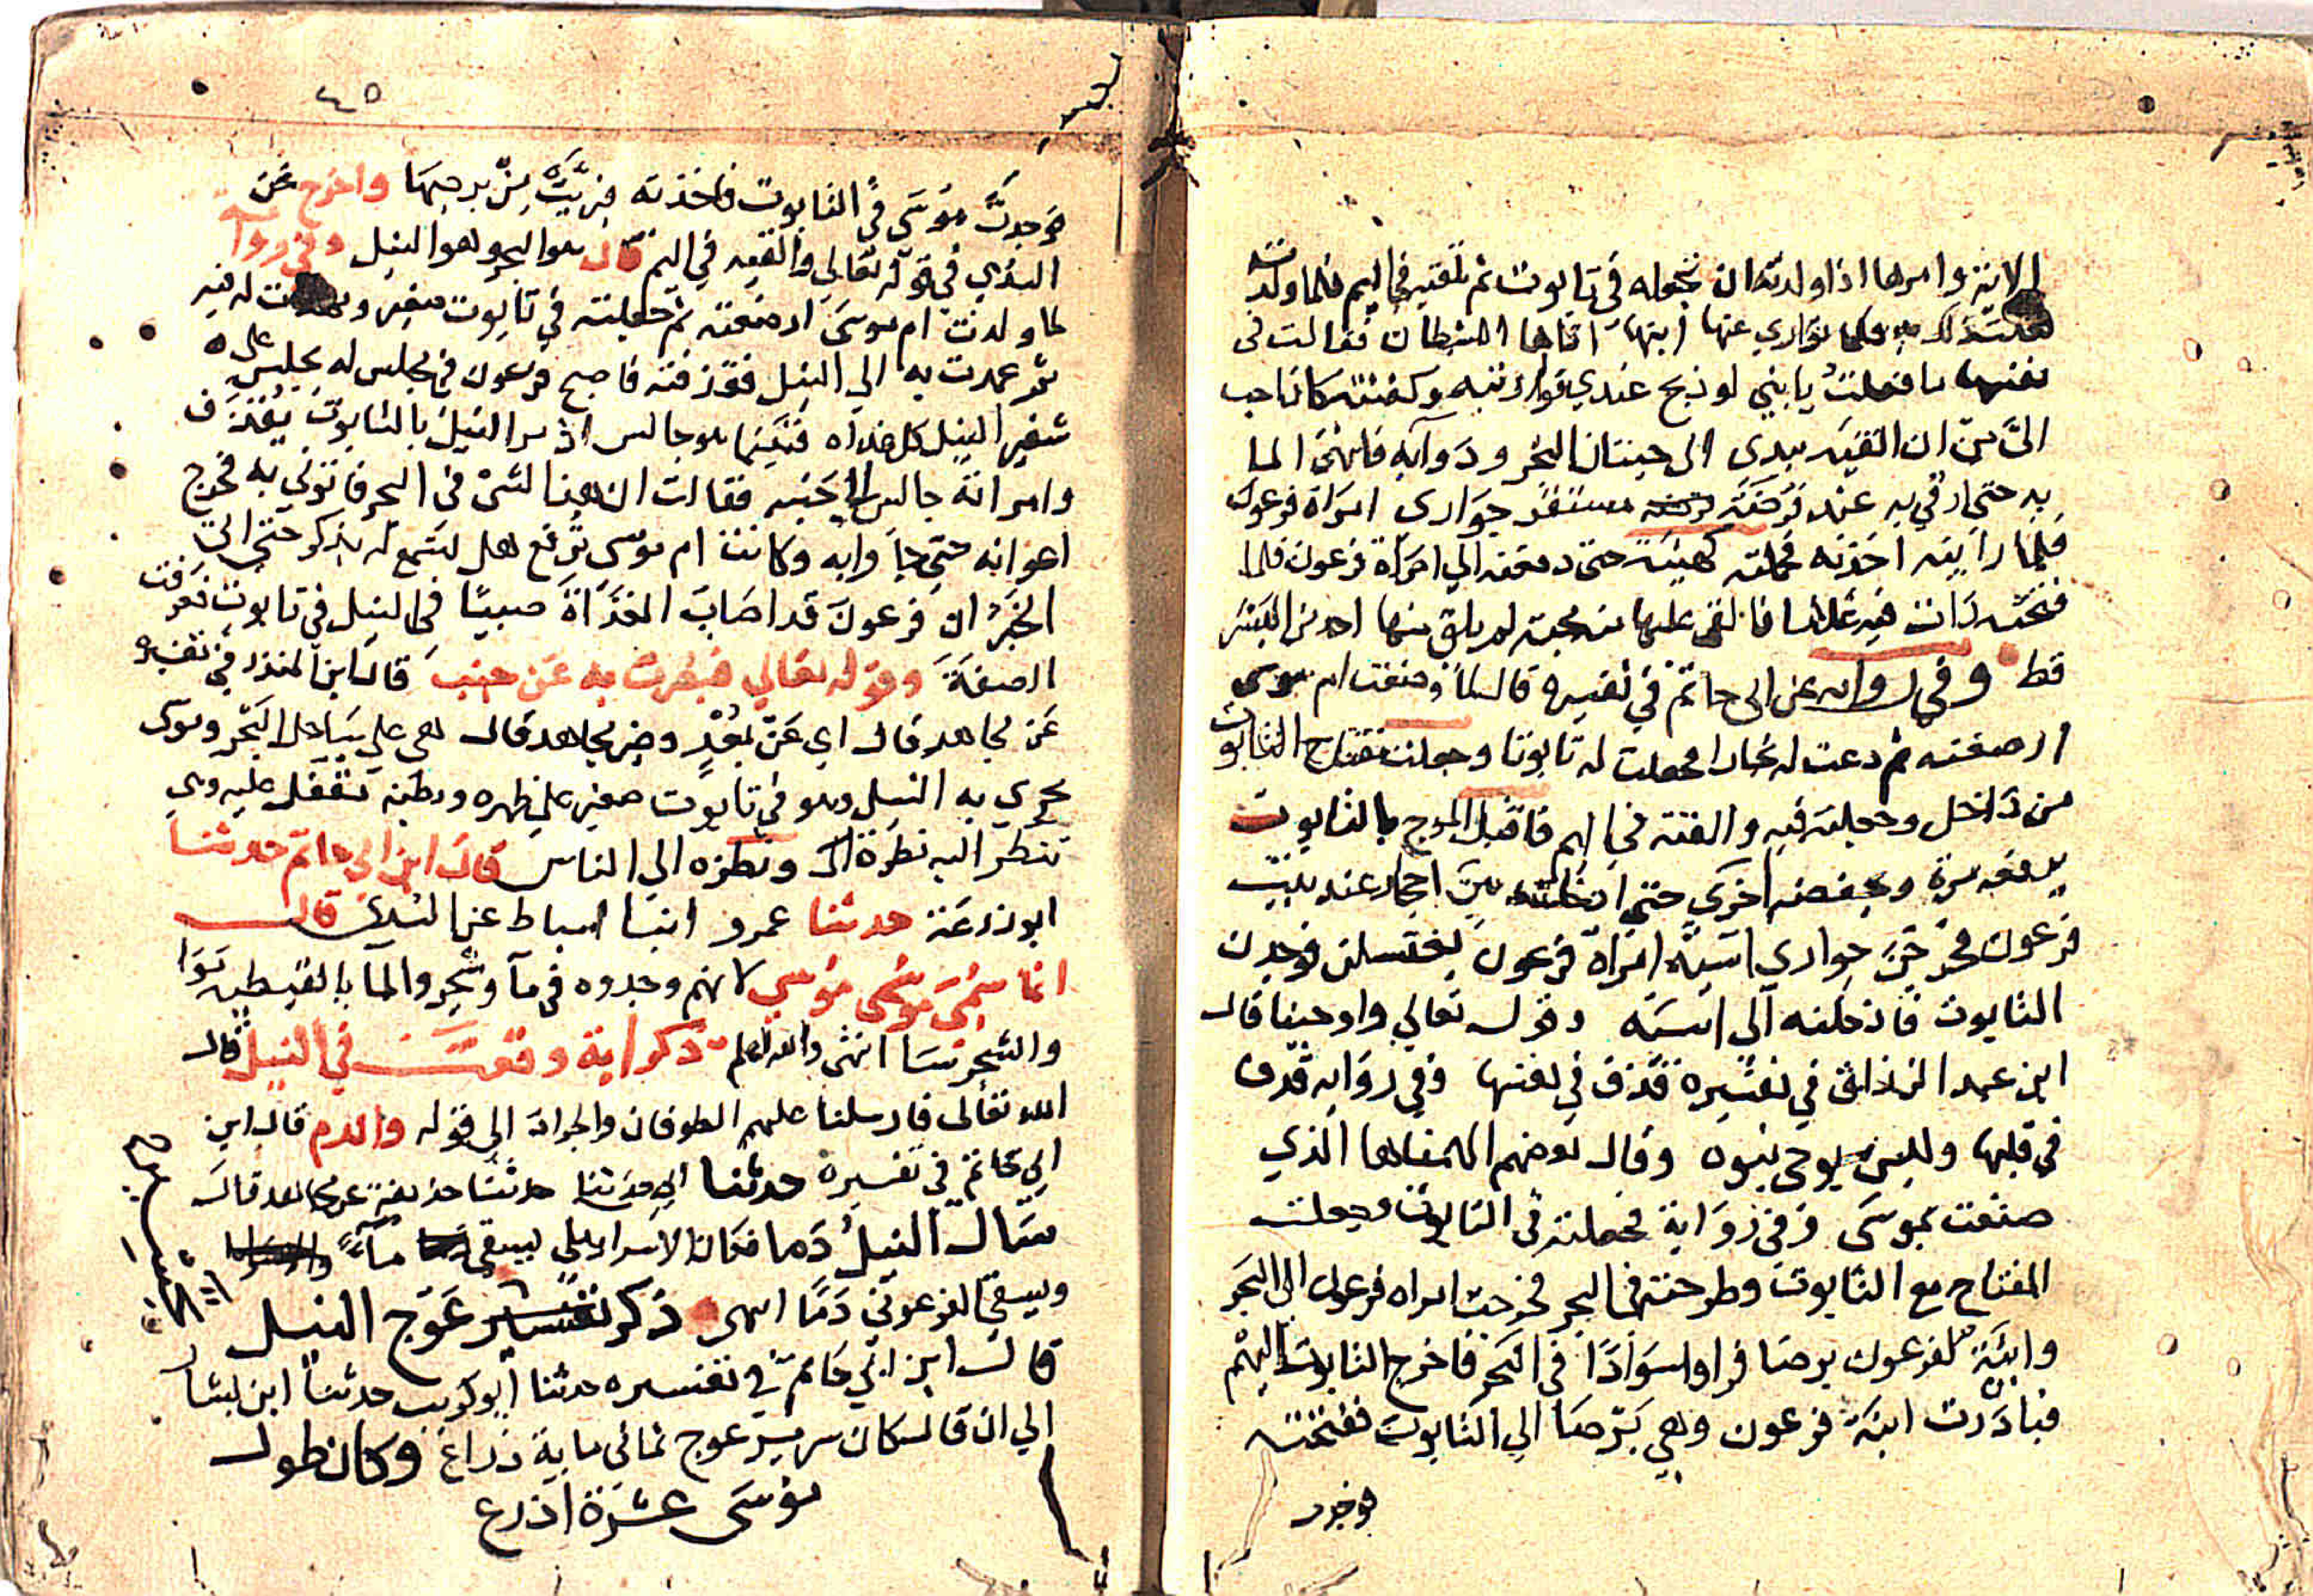 الاية وامرها اذا ولدته ان تجعله في تابوت ثم تلقيه في اليم فلما ولدت
فعلت ذلك به فلما تواري عنها ابنها اتاها الشيطان فقالت في
نفسها ما فعلت يا بني لو ذبح عندي فواريته وكفنته كان احب
الي من ان القيه بيدي الى حيتان البحر ودوابه فانتهي الما
به حتى ارفي به عند فرضة مستقر جواري امراة فرعون
فلما راينه اخذنه فحملنه كهيئته حتى دفعنه الي امراة فرعون فلما
فتحته رات فيه غلاما فالقي عليها منه محبة لم يلق منها احد من البشر
قط وفي رواية عن ابي حاتم في تفسيره قال لما وضعت ام موسى
ارضعته ثم دعت له نجارا فجعلت له تابوتا وجعلت مفتاح التابوت
من داخل وجعلته فيه والقته في اليم فاقبل الموج بالتابوت
يرفعه مرة ويخفضه اخرى حتى ادخلته بين احجار عند بيت
فرعون فخرجن جواري اسية امراة فرعون يغتسلن فوجدن
التابوت فادخلنه الى اسية وقوله تعالي واوحينا قال
ابن عبد الرزاق في تفسيره قذف في نفسها وفي رواية قذف
في قلبها وليس بوحي نبوه وقال بعضهم الهمناها الذي
صنعت بموسى وفي رواية فجعلته في التابوت وجعلت
المفتاح مع التابوت وطرحته في البحر فخرجت امراه فرعون الي البحر
وابنة لفرعون برصا فراوا سوادا في البحر فاخرج التابوت اليهم
فبادرت ابنة فرعون وهي برصا الي التابوت ففتحته
فوجدت
٤٥
فوجدت موسى في التابوت فاخذته فبريت من برصها واخرج عن
السدي في قوله تعالي والقيه في اليم قال هو البحر وهو النيل وفي رواية
لما ولدت ام موسى ارضعته ثم جعلته في تابوت صغير له فيه
ثم عمدت به الي النيل فقذفته فاصبح فرعون في مجلس له يجلس على
شفير النيل كل غداه فبينما هو جالس اذ مر النيل بالتابوت يقذف
وامراته جالس الي جنبه فقالت ان هذا لشئ في البحر فاتوني به فخرج
اعوانه حتى جاوا به وكانت ام موسى ترفع هل تسمع له بذكر حتى اتى
الخبر ان فرعون قد اصاب الغداة صبيا في النيل في تابوت فعرفت
الصفة وقوله تعالي فبصرت به عن جنب قال ابن المنذر في تفسيره
عن مجاهد قال اي عن بعد وعن مجاهد قال هي على ساحل البحر وموسى
يجري به النيل وهو في تابوت صغير على ظهره وبطنه تتقفل عليه وهي
تنظر اليه نظرة ونظره الى الناس قال ابن ابي حاتم حدثنا
ابو زرعة حدثنا عمرو انبا اسباط عن السدي قال
انما سمي موسى موسي لانهم وجدوه في ماء وشجر والما بالقبطيه موا
والشجر سا انتهى والله اعلم ذكر اية وقعت في النيل قال
الله تعالى فارسلنا عليهم الطوفان والجراد الى قوله والدم قال ابن
ابي حاتم في تفسيره حدثنا ابي حدثنا حدثنا حذيفة عن مجاهد قال
سال النيل دما فكان الاسرايلي يسقى ماء
ويسقي الفرعوني دما انتهى ذكر تفسير عوج النيل
قال ابن ابي حاتم في تفسيره حدثنا ابو كريب حدثنا ابن
الي ان قال كان سرير عوج ثماني ماية ذراع وكان طول
موسى عشرة اذرع